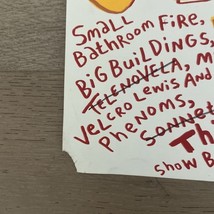 Small
Bathroom Fire,
BiG BuiLDINGS,
TELENOVELA, M
Velcro Lewis And
Phenoms,
SONNE
Th
Show B